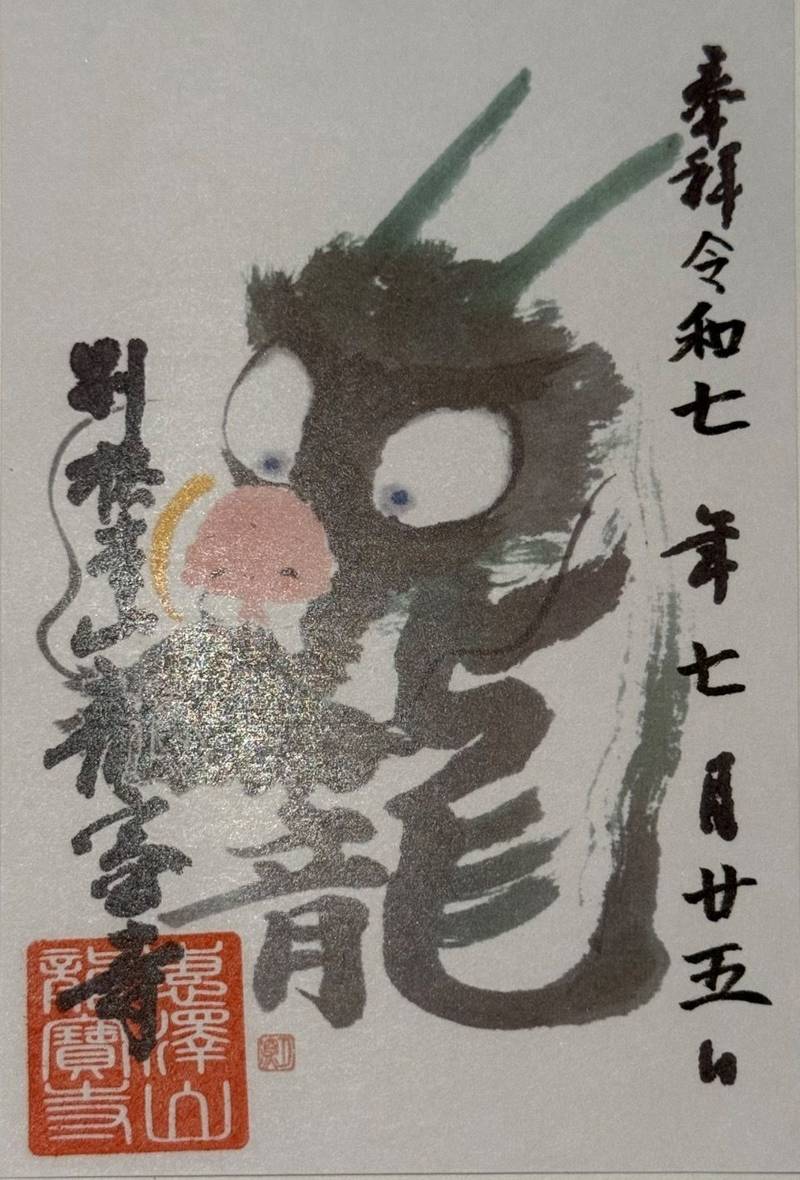 奉拝 令和七年七月廿五日
龍
別格本山 龍宝寺
恵澤山
龍寶寺